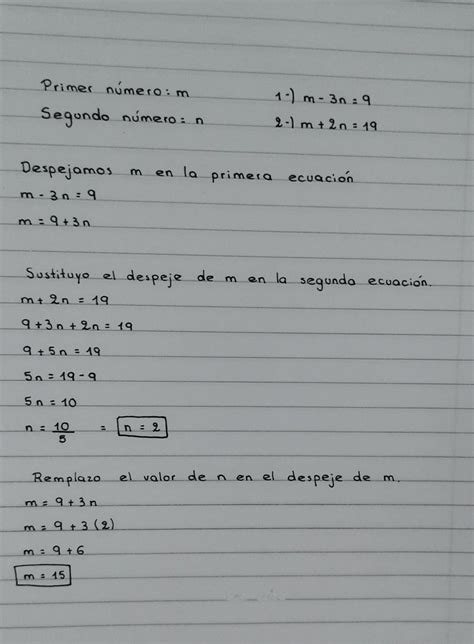 Primer número: m 1-) m - 3n = 9
Segundo número: n 2-) m + 2n = 19
Despejamos m en la primera ecuación
m - 3n = 9
m = 9 + 3n
Sustituyo el despeje de m en la segunda ecuación.
m + 2n = 19
9 + 3n + 2n = 19
9 + 5n = 19
5n = 19 - 9
5n = 10
n = 10/5 = n = 2
Remplazo el valor de n en el despeje de m.
m = 9 + 3n
m = 9 + 3 (2)
m = 9 + 6
m = 15